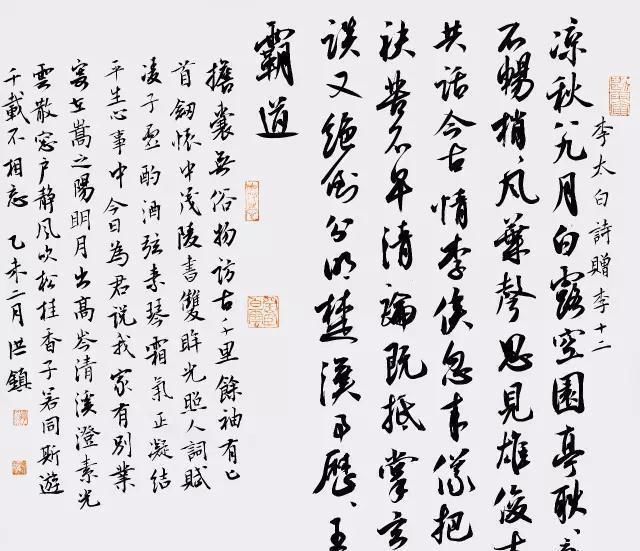 李太白詩贈李十二
凉秋八九月白露空園亭耿、
不暢梢、風葉聲思見雄俊士
共話今古情李侯忽来儀把
袂苦不早清論既抵掌玄
談又絶倒分明楚漢事歷、王
霸道
擔囊無俗物訪古千里餘袖有匕
首劒懷中茂陵書雙眸光照人詞賦
凌子虛酌酒弦素琴霜氣正凝結
平生心事中今日為君說我家有別業
寄在嵩之陽明月出高岑清溪澄素光
雲散窓户静風吹松桂香子若同斯遊
千載不相忘 乙未二月 洪鎮